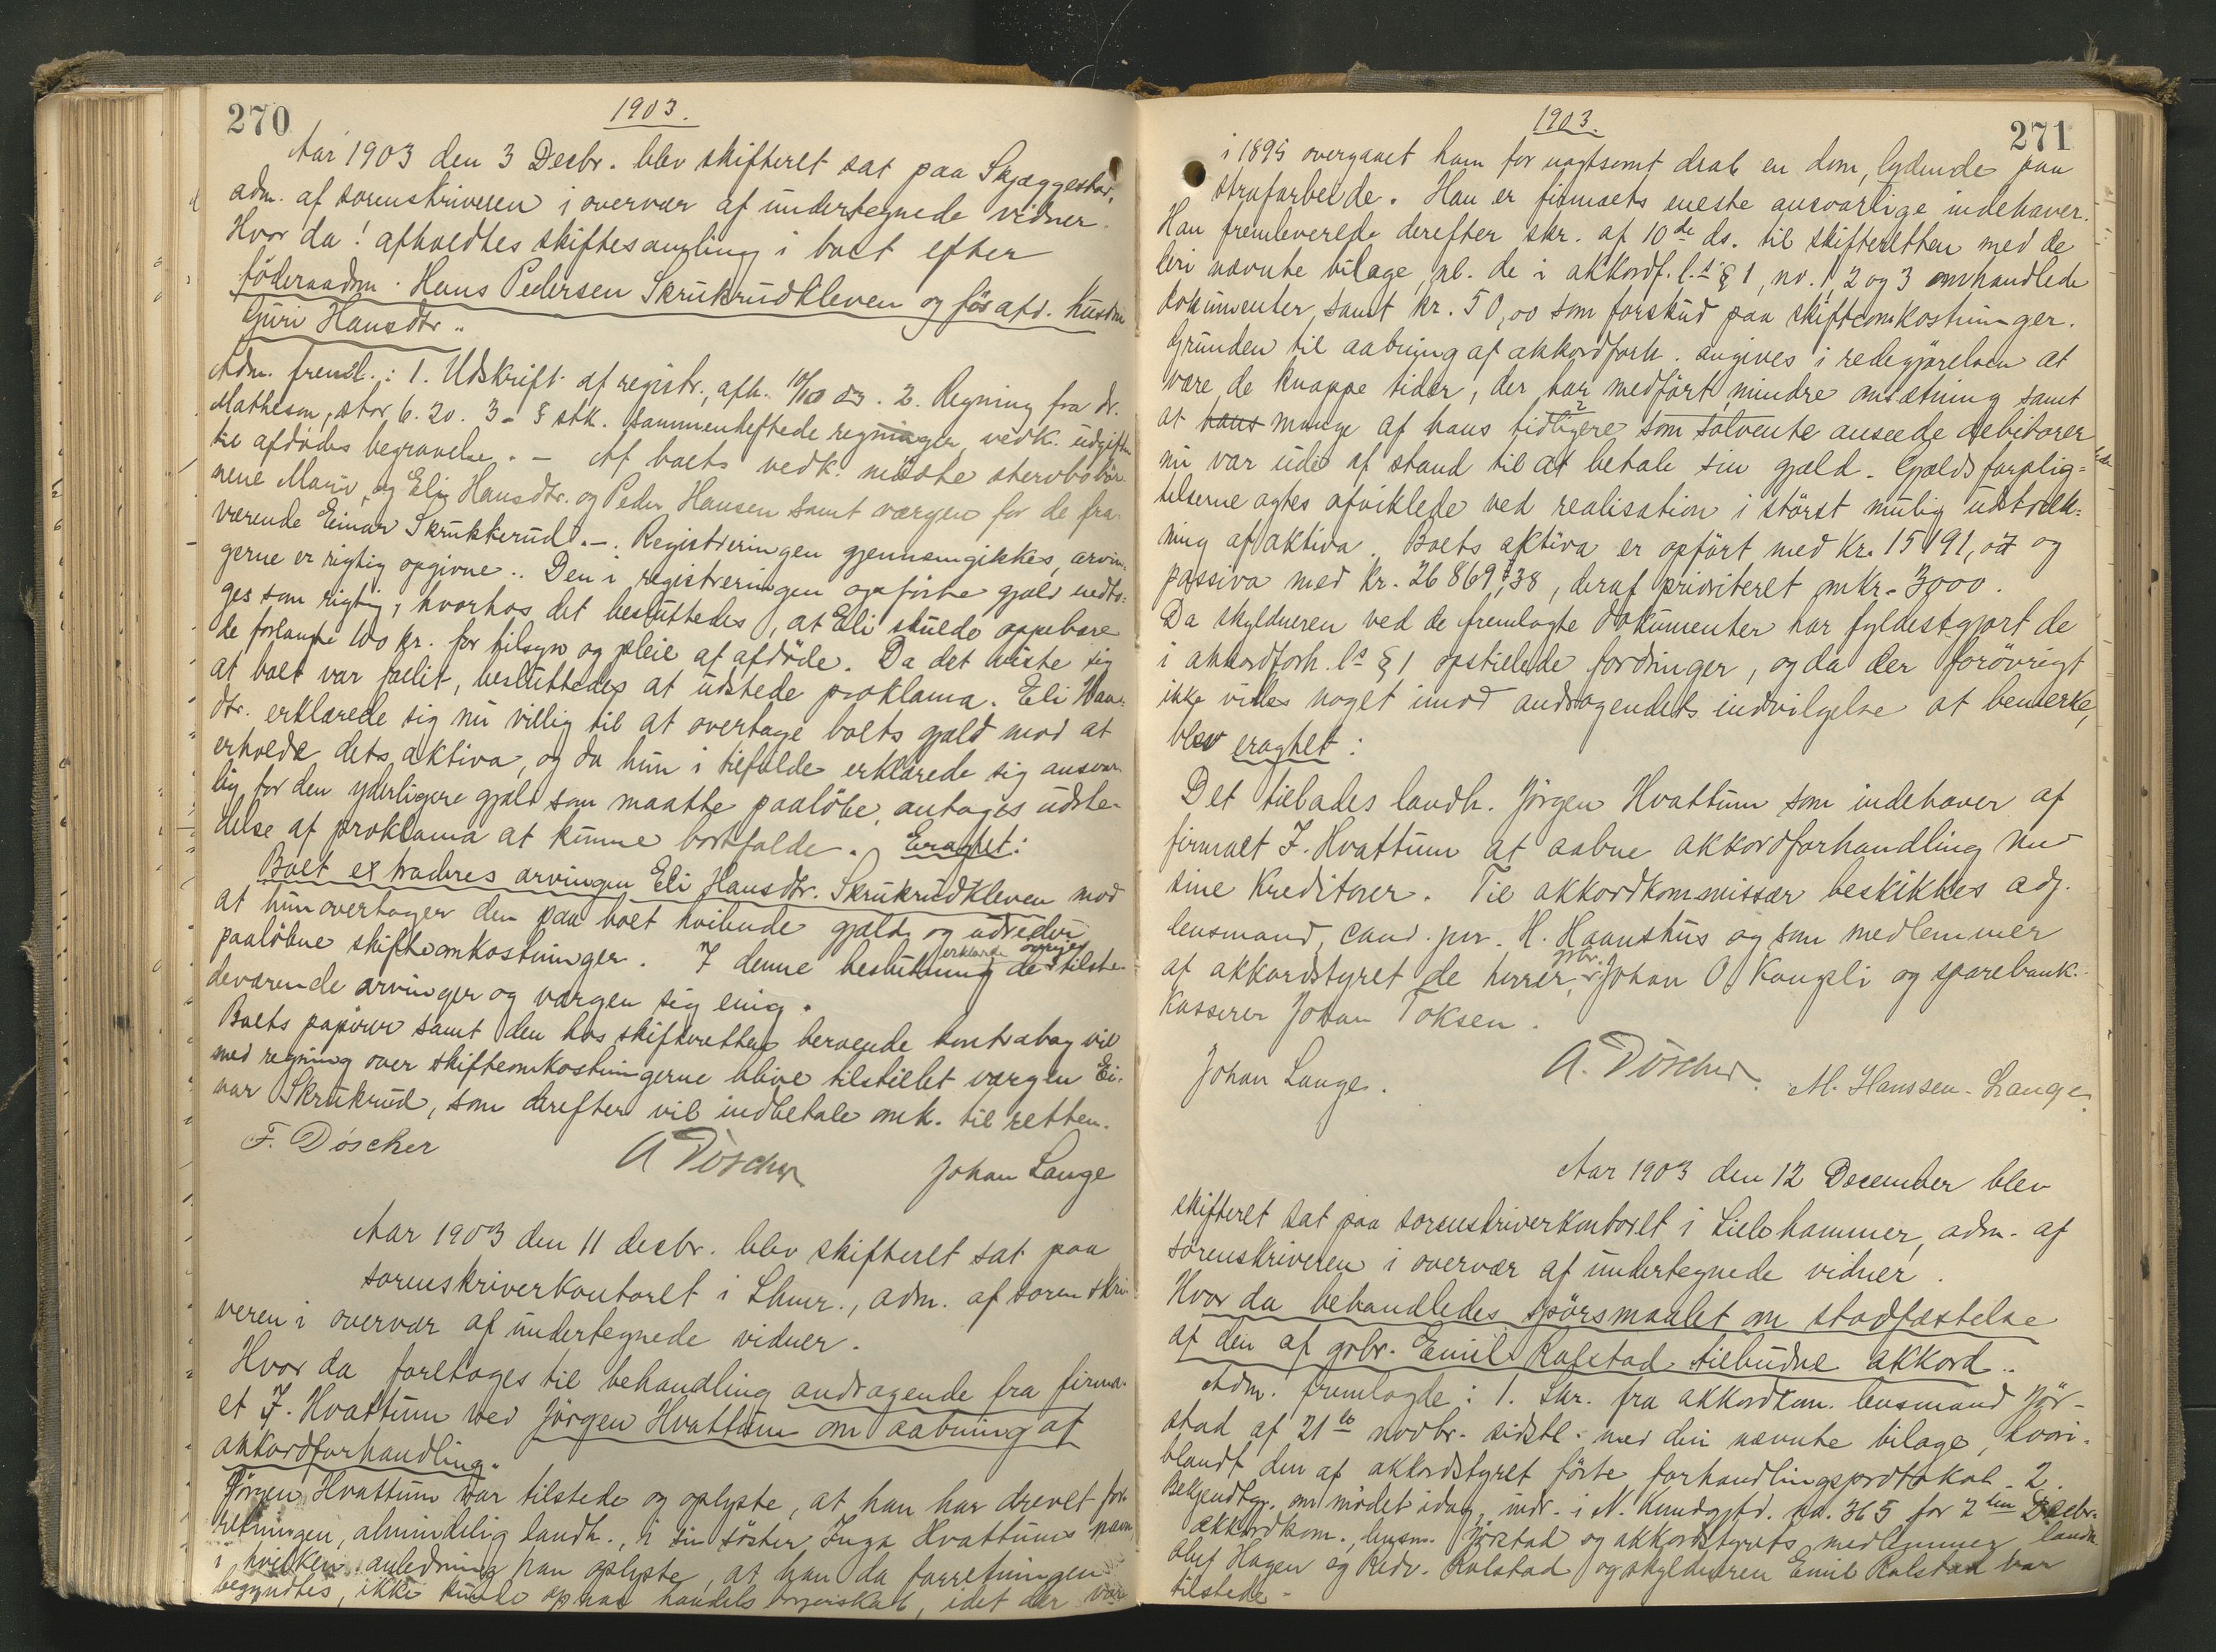 270
1903.
Aar 1903 den 3 Decbr. blev skifteret sat paa Skjæggestad,
adm. af sorenskriveren i overvær af undertegnede vidner.
Hvor da! afholdtes skiftesamling i boet efter
föderaadsm. Hans Pedersen Skrukrudkleven og før afd. hustru
Guri Hansdtr..
Adm. freml.: 1. Udskrift af registr., afh. 03. 2. Regning fra dr.
Matheson, stor 6.20. 3 - 8 stk. sammenheftede regninger vedk. udgifter
ne afdödes begravelse. - Af boets vedk. mødte stervbobör-
nene Mari, og Eli Hansdtr. og Peder Hansen samt værgen for de fra-
værende Einar Skrukkerud. -. Registreringen gjennemgikkes, arvin-
gerne er rigtig opgivne.. Den i registreringen opförte gjæld vedto-
ges som rigtig, hvorhos det besluttedes, at Eli skulde oppebære
de forlangte 100 kr. for tilsyn og pleie af afdöde. Da det viste sig
at boet var fallit, besluttedes at udstede proklama. Eli Hans-
dtr. erklærede sig nu villig til at overtage boets gjæld mod at
erholde dets aktiva, og da hun i tilfælde erklærede sig ansvar-
lig for den yderligere gjæld som maatte paalöbe, antages udste-
delse af proklama at kunne bortfalde. Eragtet:
Boet extraderes arvingen Eli Hansdtr. Skrukrudkleven mod
at hun overtager den paa boet hvilende gjæld og udreder
paaløbne skifteomkostninger. I denne beslutning erklærte de övrige tilste-
deværende arvinger og værgen sig enig.
Boets papirer samt den hos skifteretten beroende kontrabog vil
med regning over skifteomkostningerne blive tilstillet værgen Ei-
nar Skrukrud, som derefter vil indbetale omk. til retten.
F. Döscher A Döscher Johan Lange
Aar 1903 den 11 decbr. blev skifteret sat paa
sorenskriverkontoret i Lhmr., adm. af sorenskri-
veren i overvær af undertegnede vidner.
Hvor da foretoges til behandling andragende fra firma-
et J. Hvattum ved Jörgen Hvattum om aabning af
akkordforhandling.
Jörgen Hvattum var tilstede og oplyste, at han har drevet for-
retningen, almindelig landh., i sin söster Inga Hvattums navn
i hvilken anledning han oplyste, at han da forretningen
begyndtes, ikke kunde opnaa handels borgerskab, idet der var
1903.
271
i 1895 overgaaet ham for uagtsomt drab en dom, lydende paa
strafarbeide. Han er firmaets eneste ansvarlige indehaver.
Han fremleverede derefter skr. af 10de ds. til skifteretten med de
deri nævnte bilage, nl. de i akkordf. l.s § 1, no. 1, 2 og 3 omhandlede
dokumenter, samt kr. 50,00 som forskud paa skifteomkostninger.
Grunden til aabning af akkordforh. angives i redegjørelsen at
være de knappe tider, der har medført mindre omsætning samt
at hans mange af hans tidligere som solvente anseede debitorer
nu var ude af stand til at betale sin gjæld. Gjældsforplig-
telserne agtes afviklede ved realisation i störst mulig udstræk-
ning af aktiva. Boets aktiva er opfört med kr. 15191, og
passiva med kr. 26869,38, deraf prioriteret m kr. 3000.
Da skyldneren ved de fremlagte dokumenter har fyldestgjort de
i akkordforh. ls § 1 opstillede fordringer, og da der forövrigt
ikke vides noget imod andragendets indvilgelse at bemerke,
blev eragtet:
Det tillades landh. Jörgen Hvattum som indehaver af
firmaet J. Hvattum at aabne akkordforhandling med
sine kreditorer. Til akkordkommissær beskikkes adj.
lensmand, cand. jur. H. Haanshus og som medlemmer
af akkordstyret de herrer, gbr. Johan O. Kongsli og sparebank-
kasserer Johan Toksen.
Johan Lange. A. Döscher. M. Hanssen-Lange.
Aar 1903 den 12 December blev
skifteret sat paa sorenskriverkontoret i Lillehammer, adm. af
sorenskriveren i overvær af undertegnede vidner.
Hvor da behandledes spörsmaalet om stadfæstelse
af den af gbr. Emil Rolstad tilbudne akkord..
Adm. fremlagde: 1. Skr. fra akkordkom. lensmand Jör-
stad af 21de novbr. sidstl. med deri nævnte bilage, hvori-
blandt den af akkordstyret förte forhandlingsprotokol. 2.
Bekjendtgj. om mödet idag, indr. i N. Kundgjtd. no. 365 for 2den Decbr.
akkordkom., lensm. Jörstad og akkordstyrets medlemmer landh.
Oluf Hagen og Redv. Rolstad og skyldneren Emil Rolstad var
tilstede.